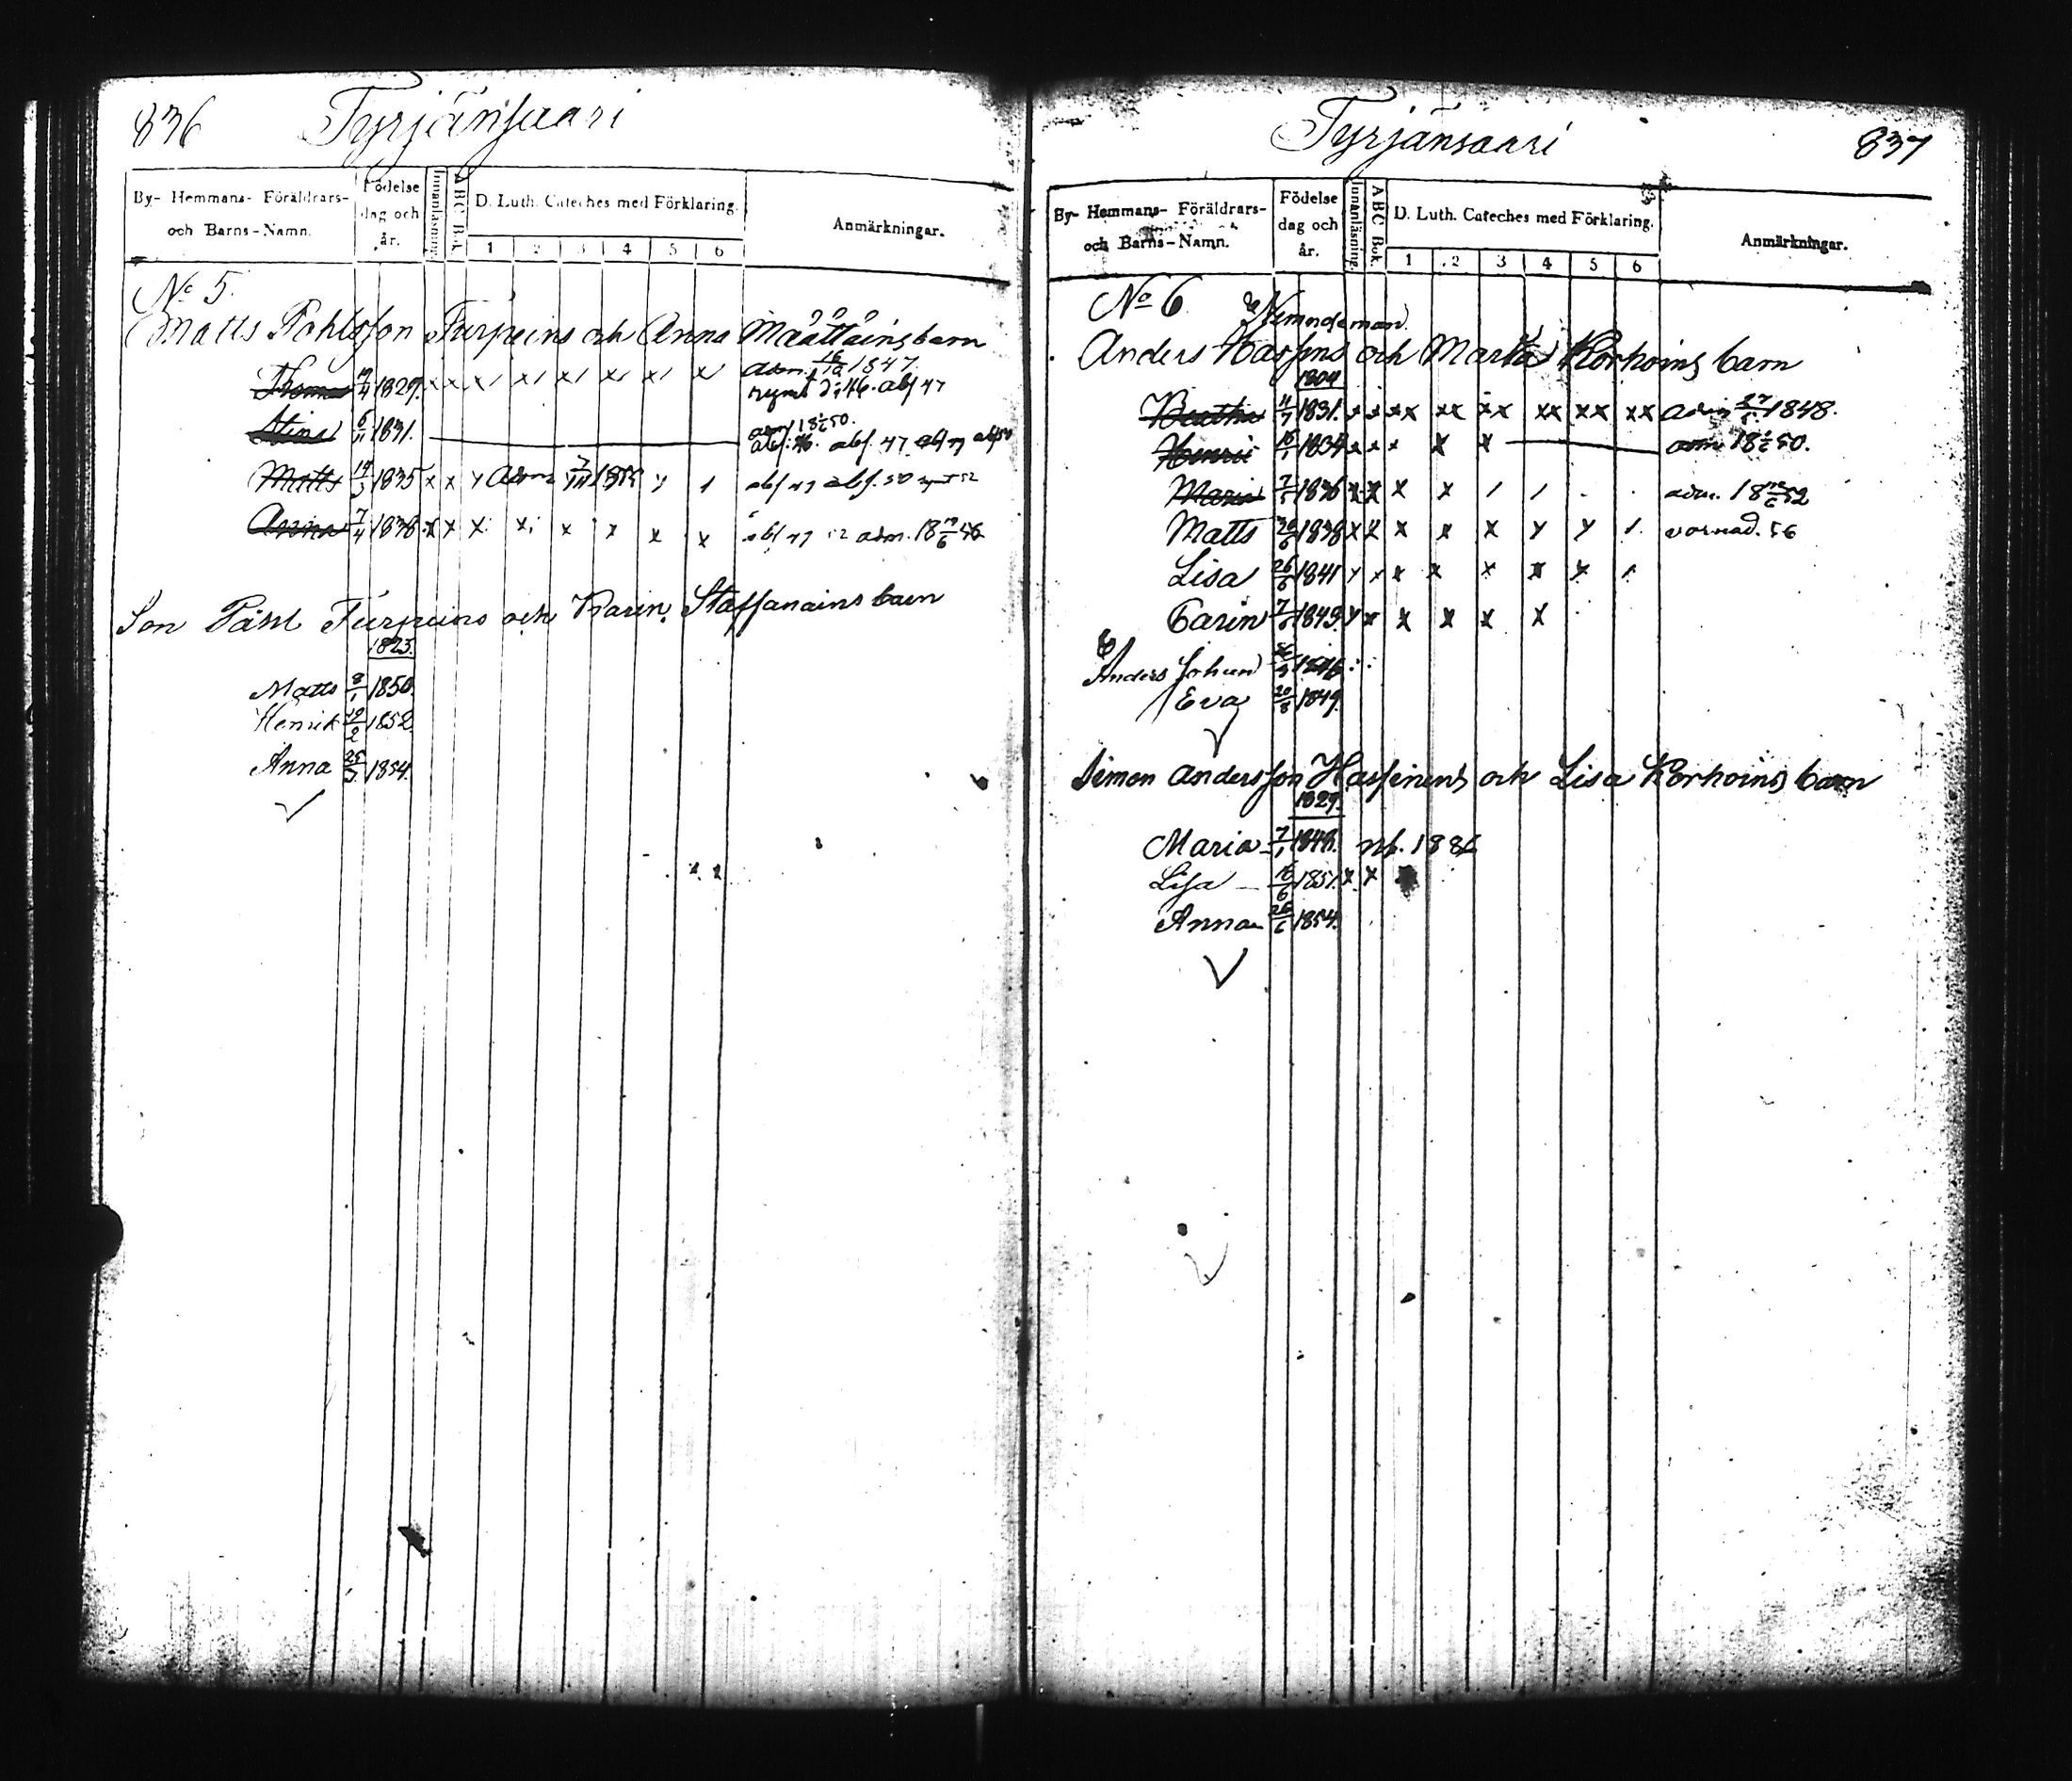 836 Tyrjänsaari
By- Hemmans- Föräldrars- och Barns-Namn.
Födelse dag och år.
Innanläsning.
ABC Bok.
D. Luth. Cateches med Förklaring.
1 2 3 4 5 6
Anmärkningar.
No 5.
Matts Pohlsson Turpeins och Anna Määttäins barn
Thomas 1829. x x x x x x x x adm. 1847.
abs 47
Stina 6/11 1831. adm 18 50.
abs. 46. abs. 47
Matts 14/3 1835 x x adm abs 47 abs. 50
Anna 7/4 1838 x x x x x x x x abs 47 52 adm. 18 56
Son Påhl Turpeins och Karin Staffanains barn
1823.
Matts 8/1 1850.
Henrik 19/2 1852.
Anna 25/3 1854.
Tyrjänsaari 837
By- Hemmans- Föräldrars- och Barns-Namn.
Födelse dag och år.
Innanläsning.
ABC Bok.
D. Luth. Cateches med Förklaring.
1 2 3 4 5 6
Anmärkningar.
No 6.
Nemndeman
Anders och Marta Korhoins barn
1804
1831. x x xx xx xx xx xx xx adm 1848.
Henric 1834 x x x x x adm. 18 50.
Maria 7/5 1836 x x x x adm. 18 52
Matts 1838 x x x x x y y 1. 56
Lisa 26/6 1841 y x x x x x x
Carin 1843. y x x x x x
Anders Johan 1846
Eva 20/8 1849.
Simon Andersson och Lisa Korhoins barn
1829.
Maria 7/1 1848.
Lisa 16/6 1851. x x
Anna 26/6 1854.